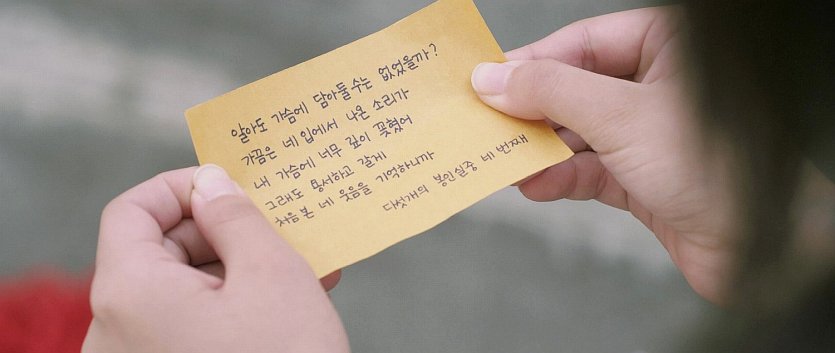 알아도 가슴에 담아둘수는 없었을까?
가끔은 네 입에서 나온 소리가
내 가슴에 너무 깊이 꽂혔어
그래도 용서하고 갈게
처음 본 네 웃음을 기억하니까
다섯개의 봉인실중 네 번째